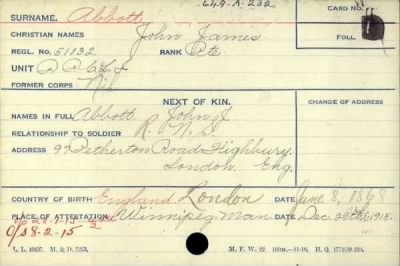 649-A-232
SURNAME. Abbott CARD NO.
CHRISTIAN NAMES John James FOLL
REGL. NO. 51032 RANK Pte
UNIT P.P.C.L.I
FORMER CORPS Nil
NEXT OF KIN. CHANGE OF ADDRESS
NAMES IN FULL Abbott John J.
RELATIONSHIP TO SOLDIER
ADDRESS 97 Petherton Road Highbury.
London Eng.
COUNTRY OF BIRTH England London DATE June 8, 1868
PLACE OF ATTESTATION Winnipeg Man. DATE Dec. 1914.
O/S 8-2-15
M. F. W. 22.